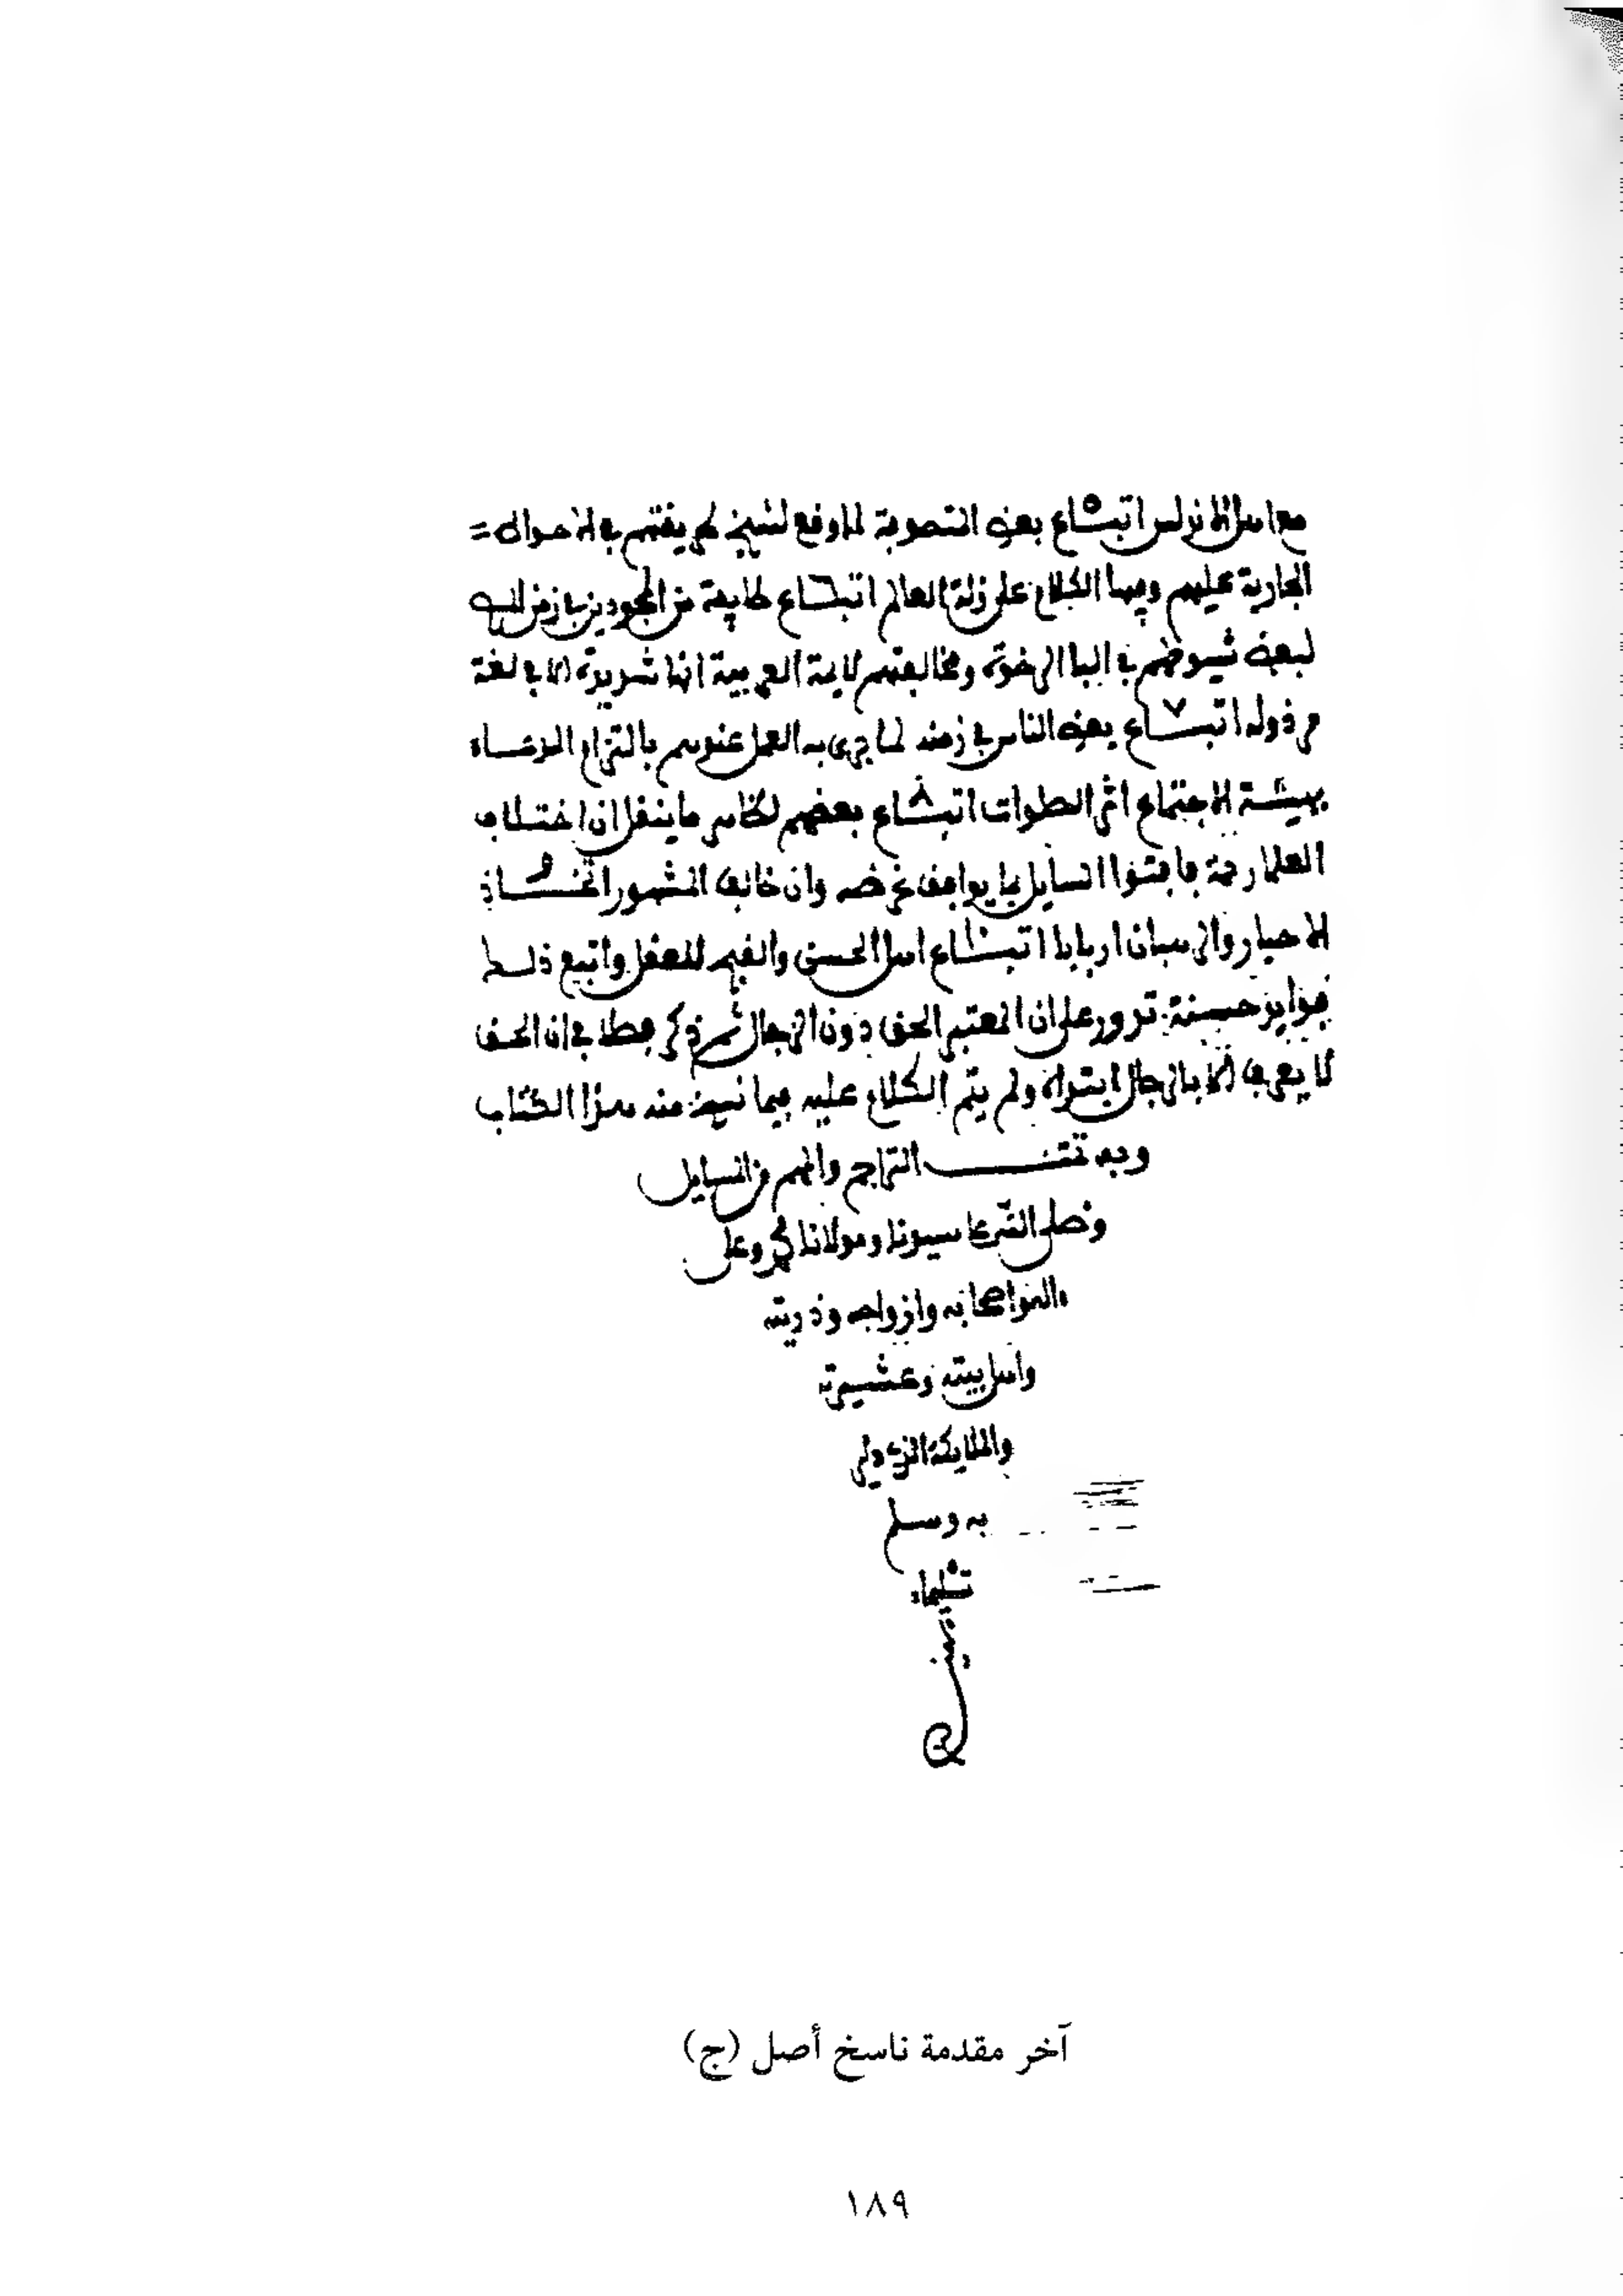 مع اهل الاندلس اتبـ٥ـاع بعض المتصوفة لما وقع لشيخ لم يفتهم في الاحوال =
الجارية عليهم وفيها الكلام على زلة العالم اتبـ٦ـاع طايفة من المجودين في زمن
لبعض شيوخهم في البا الرخوة ومخالفتهم لايمة العربية انها شديدة الا في لغة
مرذولة اتبـ٧ـاع بعض الناس في زمنه لما جرى به العمل عندهم بالتزام الدعاء
بهيئة الاجتماع اثر الصلوات اتبـ٨ـاع بعضهم لظاهر ما ينقل ان اختلاف
العلما رحمة فافتوا السايل بما يوافق غرضه وان خالف المشهور اتخـ٩ـاذ
الاحبار والرهبان اربابا اتبـ١٠ـاع اهل الحسن والقبح للعقل واتبع ذلك
بفوايد حسنة تدور على ان المعتبر الحق دون الرجال ثم ذكر فصلا في ان الحق
لا يعرف الا بالرجال ابتداه ولم يتم الكلام عليه فيما نسخ منه هذا الكتاب
وبه تمت التراجم والمهم من المسايل
وصلى الله على سيدنا ومولانا محمد وعلى
اله واصحابه وازواجه وذريته
واهل بيته وعشيرته
والملايكة
به وسلم
تسليما
آخر مقدمة ناسخ أصل (ج)
١٨٩